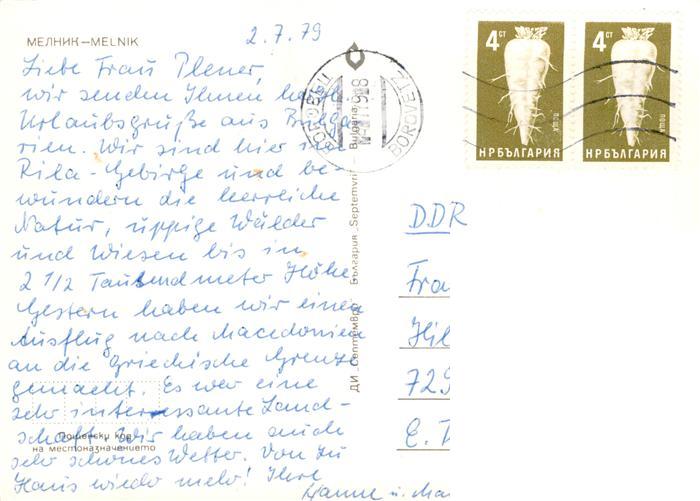 МЕЛНИК—MELNIK
2.7.79
Liebe Frau Plener,
wir senden Ihnen herzl.
Urlaubsgrüße aus Bulga-
rien. Wir sind hier im
Rila-Gebirge und be-
wundern die herrliche
Natur, üppige Wälder
und Wiesen bis in
2 1/2 Tausendmeter Höhe
Gestern haben wir einen
Ausflug nach Macedonien
an die Griechische Grenze
gemacht. Es war eine
sehr interessante Land-
schaft. Wir haben auch
sehr schönes Wetter. Von zu
Haus wieder mehr! Ihre
Hanne u. Ma
Пощенски код
на местоназначението
ДИ „Септември" България „Septemvri" Bulgaria
BOROVETZ
4 СТ
НРБЪЛГАРИЯ
4 СТ
НРБЪЛГАРИЯ
DDR
Fra
Hil
729
E. T